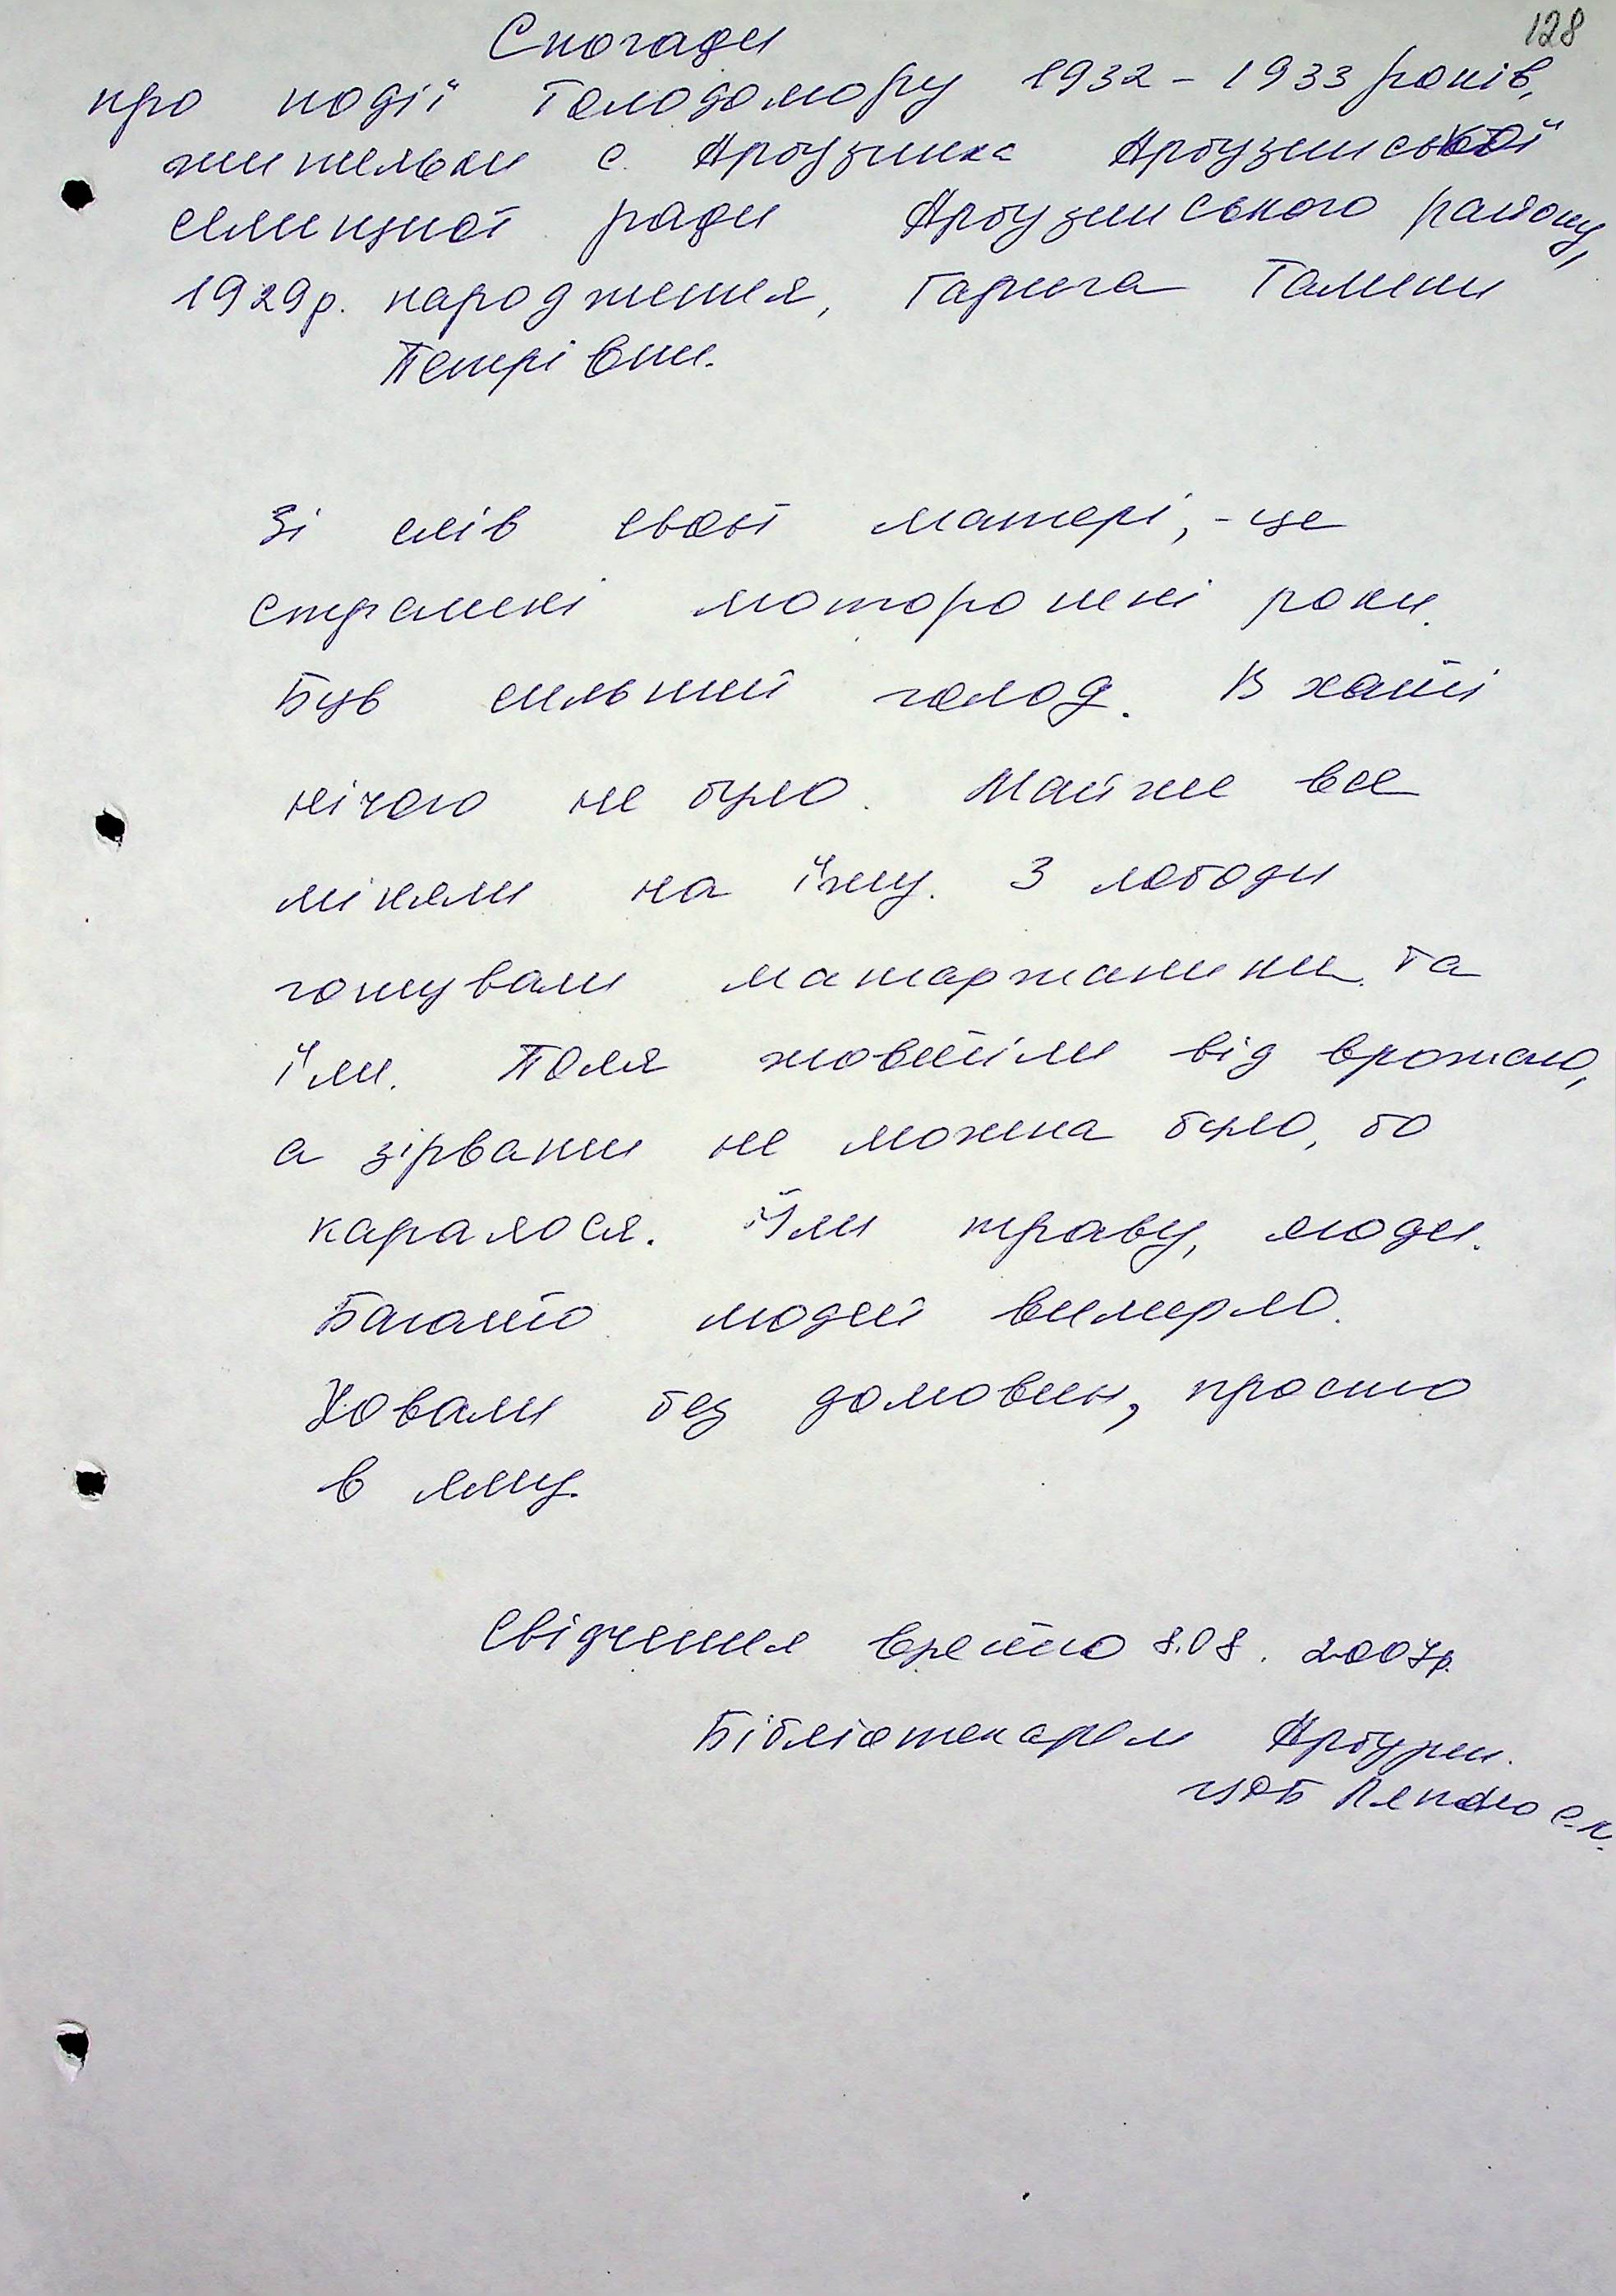 128
Спогади
про події Голодомору 1932 - 1933 років,
жительки с. Арбузинка Арбузинської
селищної ради Арбузинського району,
1929р. народження, Галини
Петрівни.
Зі слів своєї матері, - це
страшні моторошні роки.
Був сильний голод. В хаті
нічого не було. Майже все
міняли на їжу. З лободи
готували маторженики та
їли. Поля жовтіли від врожаю,
а зірвати не можна було, бо
каралося. Їли траву, люди.
Багато людей вимерло.
Ховали без домовин, просто
в яму.
Свідчення взято 8.08. 2007р.
Бібліотекарем Арбузин.
ЦРБ